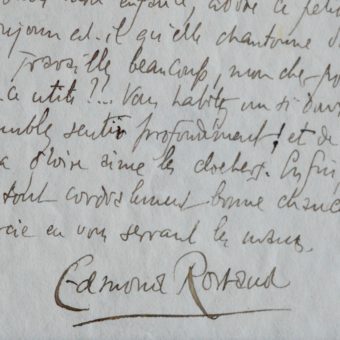 enfance, adore ce petit
est-il qu'elle chantonne
Travaillez beaucoup, mon cher
utile ?!... Vous habitez un si
sentir profondément ! et de
gloire aime les clochers. Enfin,
sont cordialement bonne chance
cie en vous serrant les mains.
Edmond Rostand